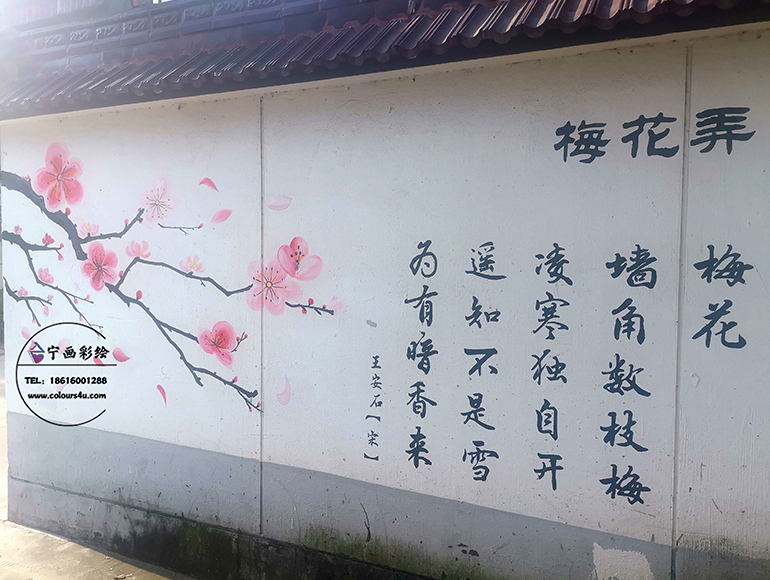 梅花弄
梅花
墙角数枝梅
凌寒独自开
遥知不是雪
为有暗香来
王安石【宋】
宁画彩绘
TEL: 18616001288
www.colours4u.com